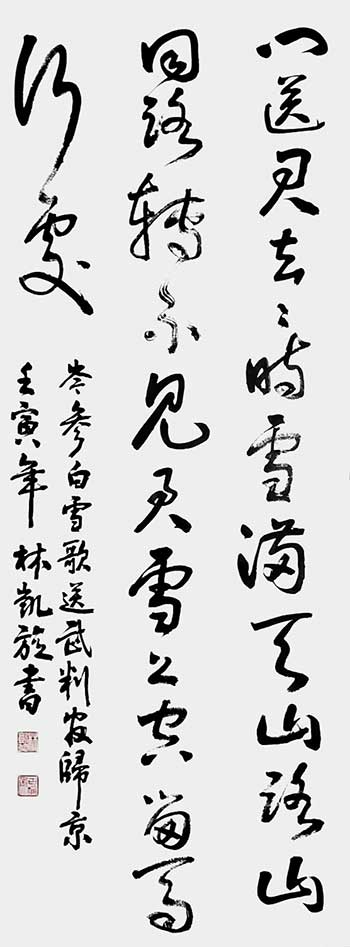 門送君去〻時雪滿天山路山
回路轉不見君雪上空留馬
行處
岑參白雪歌送武判官歸京
壬寅年 林凱旋書